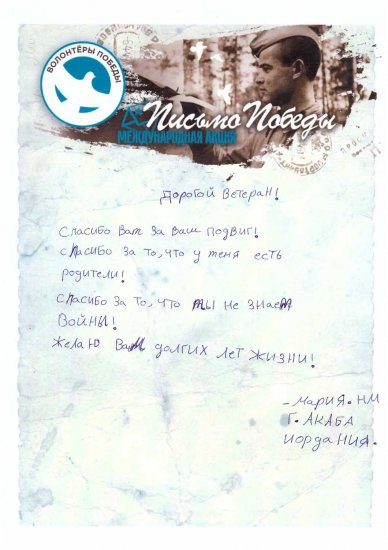 ВОЛОНТЁРЫ ПОБЕДЫ
Письмо Победы
МЕЖДУНАРОДНАЯ АКЦИЯ
Дорогой Ветеран!
Спасибо Вам за Ваш подвиг!
Спасибо за то, что у меня есть
родители!
Спасибо за то, что мы не знаем
войны!
Желаю Вам долгих лет жизни!
- Мария. НМ
Г. АКАБА
Иордания.